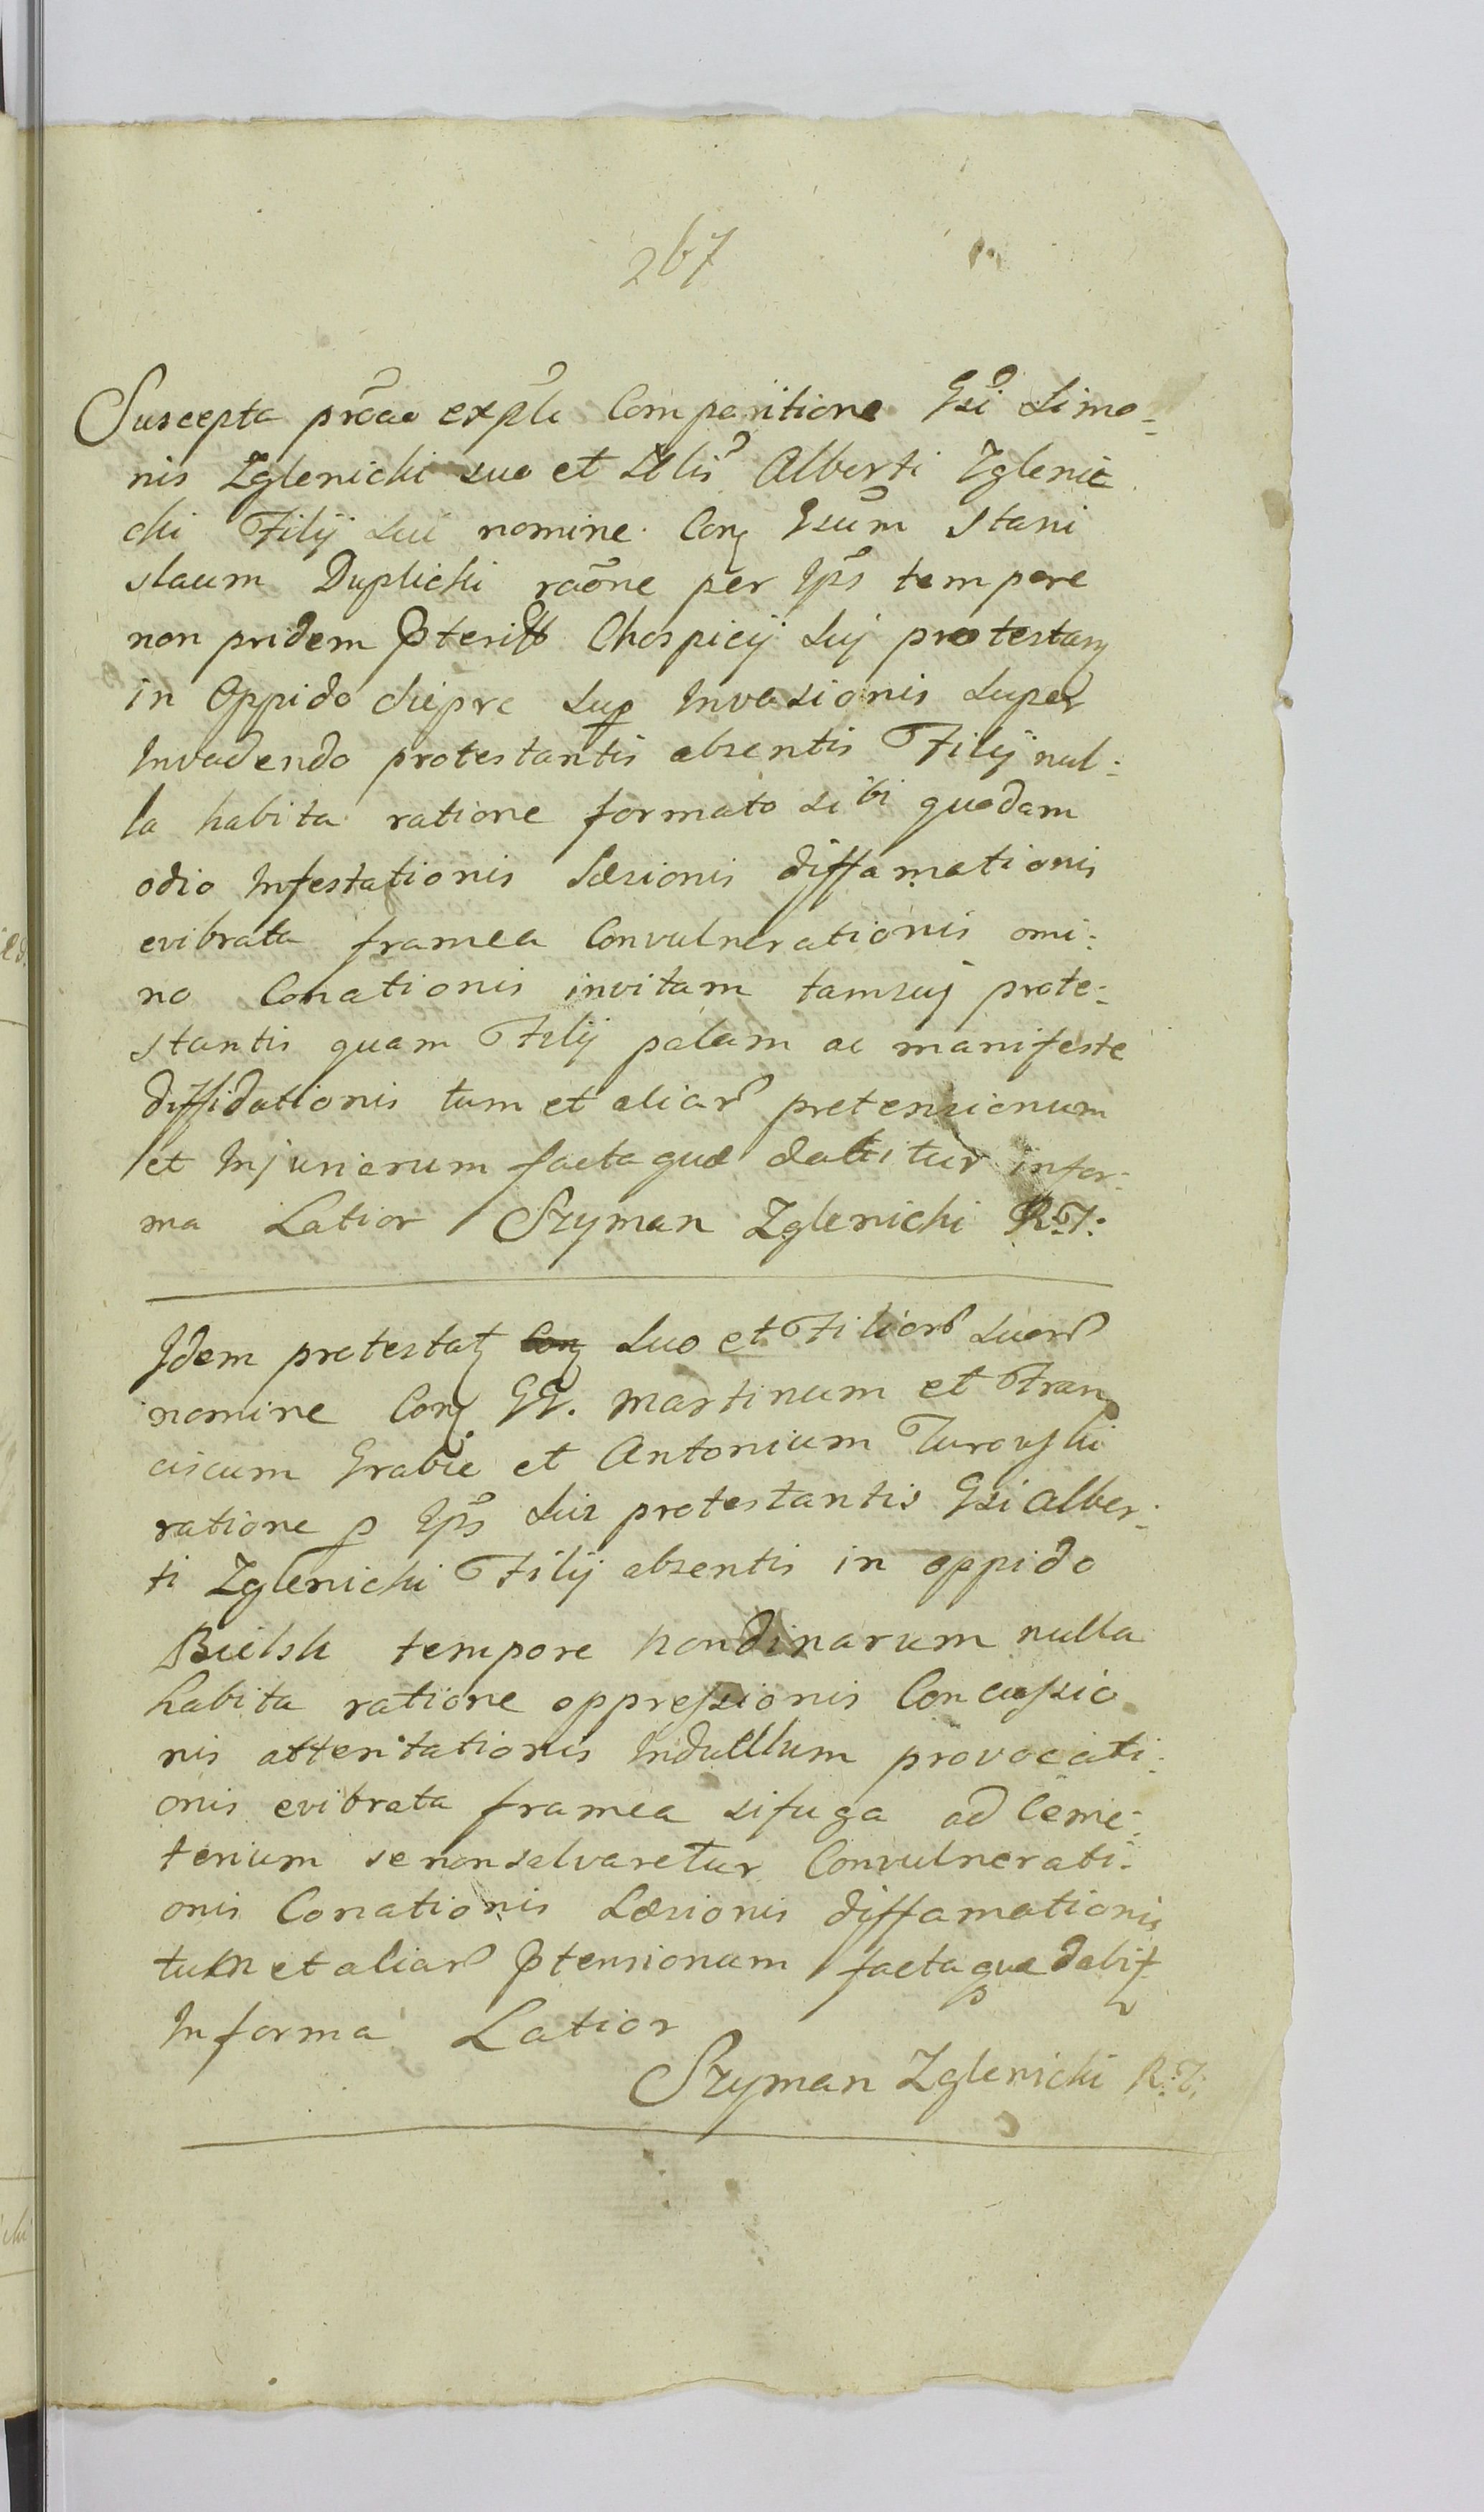 267
Suscepta prãae expla Comparitione Gsi Simo-
nis Zglenicki suo et Nlis Alberti Zglenic
ki Filij Sui nomine Con Gsum Stani
slaum Duplicki raõne per Ips tempore
non pridem pterit Chospicij Sui protestan
in Oppido Sup Invasionis Super
Invadendo protestantis absentis Filij nul:
la habita ratione formato sibi quodam
odio Infestationis Læsionis diffamationis
evibrata framea Convulnerationis omi:
no Conationis invitam tam suij prote:
stantis quam Filij palam ac manifeste
diffidationis tum et aliar pretensionum
et Injuriarum facta quæ dabitur infor:
ma Latior Szyman Zglenicki R:T:
Idem protestat Con Suo et Filior Suor
nomine Con GG. Martinum et Fran
ciscum Grabie et Antonium Turowski
ratione p Ips Sui protestantis Gsi Alber:
ti Zglenicki Filij absentis in oppido
Bielsk tempore nondinarum nulla
habita ratione oppressionis Concussio
nis attentationis Induellum provocati:
onis evibrata framea sifuga ad Ceme:
terium se non salvaretur Convulnerati:
onis Conationis Læsionis diffamationis
tum et aliar ptensionum facta qua dabit
In forma Latior
Szyman Zglenicki R:T: